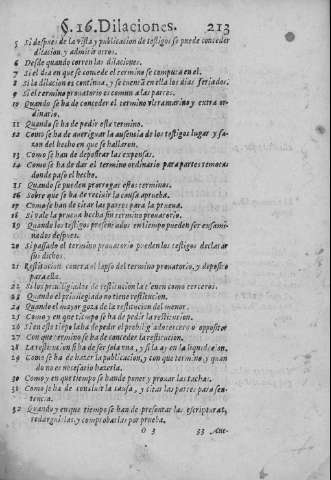 §. 16. Dilaciones. 213
5 Si despues de la vista y publicacion de testigos se puede conceder
dilacion, y admitir otros.
6 Desde quando corren las dilaciones.
7 Si el dia en que se concede el termino se computa en el.
8 Si la dilacion es continua, y se cuenta en ella los dias feriados.
9 Si el termino prouatorio es comun a las partes.
10 Quando se ha de conceder el termino vltramarino y extraor-
dinario.
11 Quando se ha de pedir este termino.
12 Como se ha de aueriguar la ausencia de los testigos lugar y sa-
zon del hecho en que se hallaron.
13 Como se han de depositar las expensas.
14 Como se ha de dar el termino ordinario para partes remotas
donde paso el hecho.
15 Quando se pueden prorrogar estos terminos.
16 Sobre que se ha de reciuir la causa a prueba.
17 Como se han de citar las partes para la prueua.
18 Si vale la prueua hecha sin termino prouatorio.
19 Quando los testigos presentados en tiempo pueden ser exami-
nados despues.
20 Si passado el termino prouatorio pueden los testigos declarar
sus dichos.
21 Restitucion contra el lapso del termino prouatorio, y deposito
para ella.
22 Si los priuilegiados de restitucion la tienen como terceros.
23 Quando el priuilegiado no tiene restitucion.
24 Quando el mayor goza de la restitucion del menor.
25 Como y en que tiempo se ha de pedir la restitucion.
26 Si en este tiempo la ha de pedir el priuilegiado tercero o oppositor
27 Con que termino se ha de conceder la restitucion.
28 La restitucion si ha de ser sola vna, y si la ay en la liquidacion.
29 Como se ha de hazer la publicacion, y con que termino, y quan
do no es necesario hazerla.
30 Como y en que tiempo se han de poner y prouar las tachas.
31 Como se ha de concluir la causa, y citar las partes para sen-
tencia.
32 Quando y en que tiempo se han de presentar las escripturas,
redarguillas, y comprobarlas por prueba.
O 3 33 Aue-